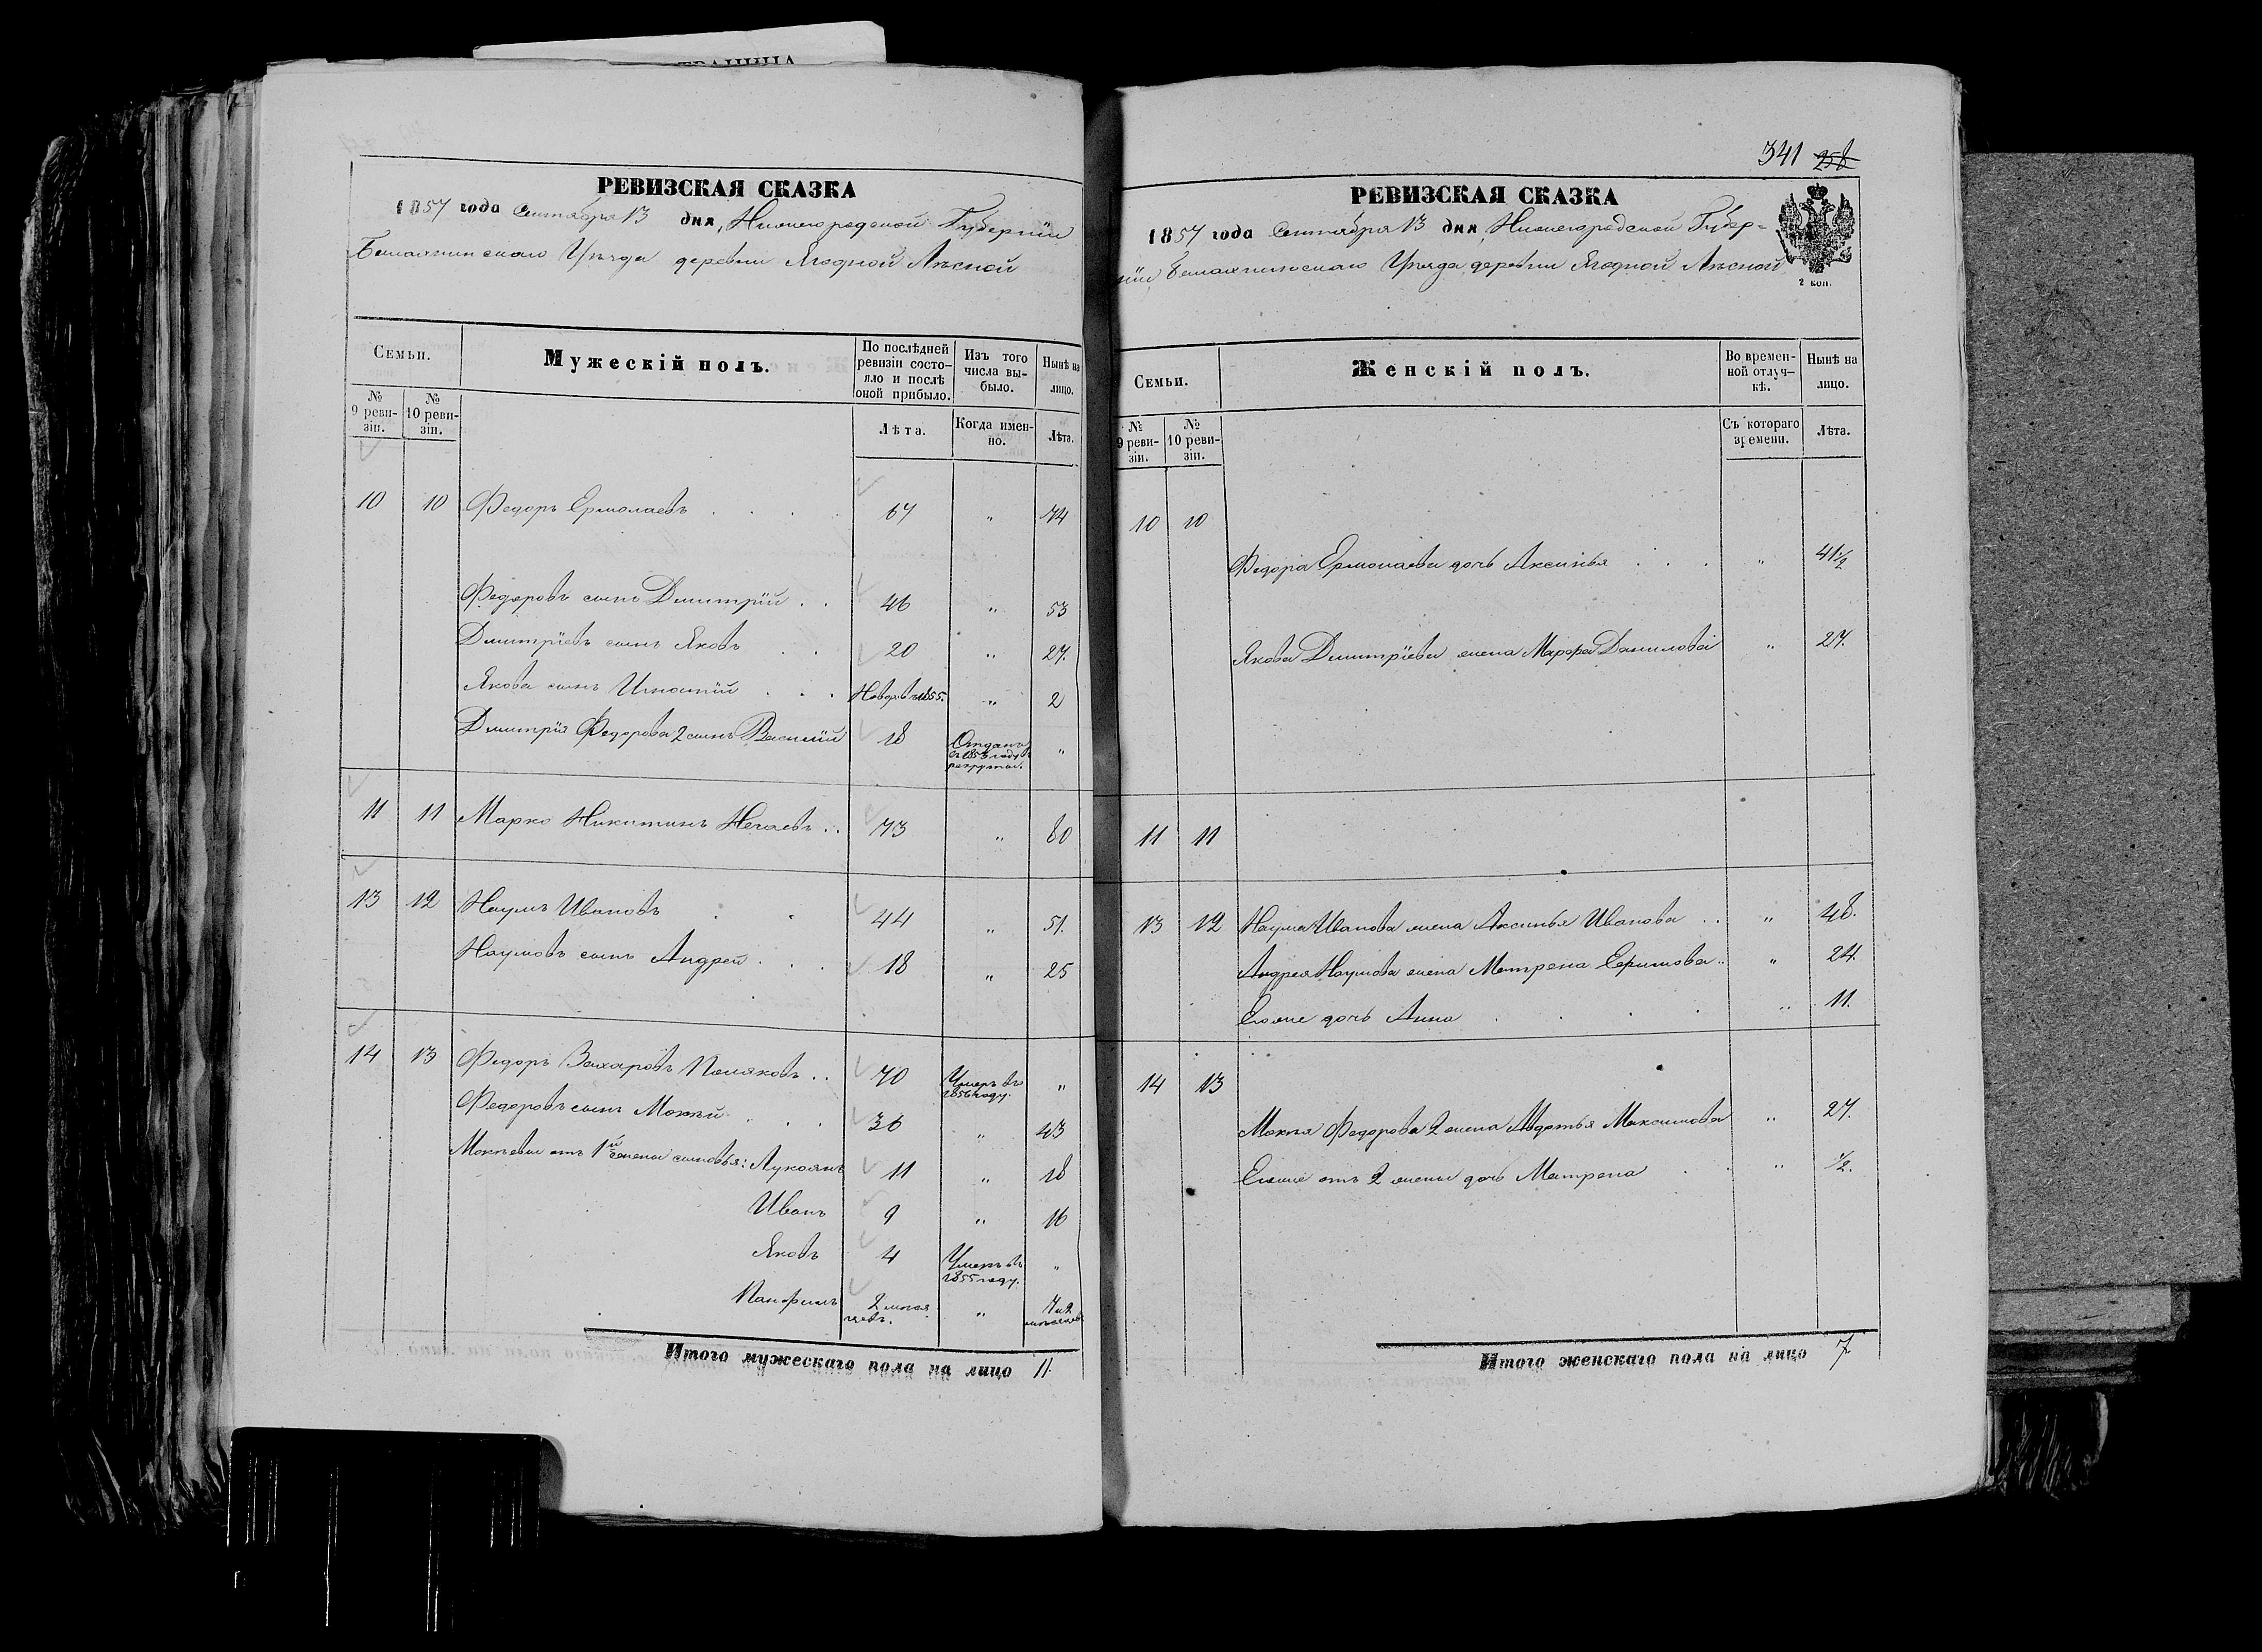 РЕВИЗСКАЯ СКАЗКА
1857 года Сентября 13 дня, Нижегородской Губерніи
Балахнинскаго Уѣзда деревни Ягодной Лѣсной
Семьи.
Мужескій полъ.
По послѣдней ревизіи состояло и послѣ оной прибыло.
Изъ того числа выбыло.
Нынѣ на лицо.
№ 9 ревизіи.
№ 10 ревизіи.
Лѣта.
Когда именно.
Лѣта.
10 10 Федоръ Ермолаевъ . . . . 67 " 74
Федоровъ сынъ Дмитрій . . 46 " 53
Дмитріевъ сынъ Яковъ . . 20 " 27.
Якова сынъ Игнатій . . . Новорожд 1855. " 2
Дмитрія Федорова 2 сынъ Василій 18 Отданъ въ 1853 году въ рекруты. "
11 11 Марко Никитинъ Нечаевъ . . 73 " 80
13 12 Наумъ Ивановъ . . 44 " 51.
Наумовъ сынъ Андрей . . . 18 " 25
14 13 Федоръ Захаровъ Поляковъ . . 70 Умеръ въ 1856 году. "
Федоровъ сынъ Мокѣй . . . 36 " 43
Мокѣевы отъ 1й жены сыновья: Лукоянъ 11 " 18
Иванъ 9 " 16
Яковъ 4 Умеръ въ 1855 году. "
Панфилъ 2 мѣсяцевъ. " 7 и 2 мѣсяцевъ
Итого мужескаго пола на лицо 11.
341 258
РЕВИЗСКАЯ СКАЗКА
1857 года Сентября 13 дня, Нижегородской Губер=
ніи, Балахнинскаго Уѣзда, деревни Ягодной Лѣсной
2 коп.
Семьи.
Женскій полъ.
Во временной отлучкѣ.
Нынѣ на лицо.
№ 9 ревизіи.
№ 10 ревизіи.
Съ котораго времени.
Лѣта.
10 10
Федора Ермолаева дочь Аксинья . . . " 41½
Якова Дмитріева жена Марфа Данилова " 27.
11 11
13 12 Наума Иванова жена Аксинья Иванова . . " 48.
Андрея Наумова жена Матрена Ефимова . . " 24.
Егоже дочь Анна . . . . " 11.
14 13
Мокѣя Федорова 2 жена Авдотья Максимова " 27.
Егоже отъ 2 жены дочь Матрена . . " ½.
Итого женскаго пола на лицо 7.